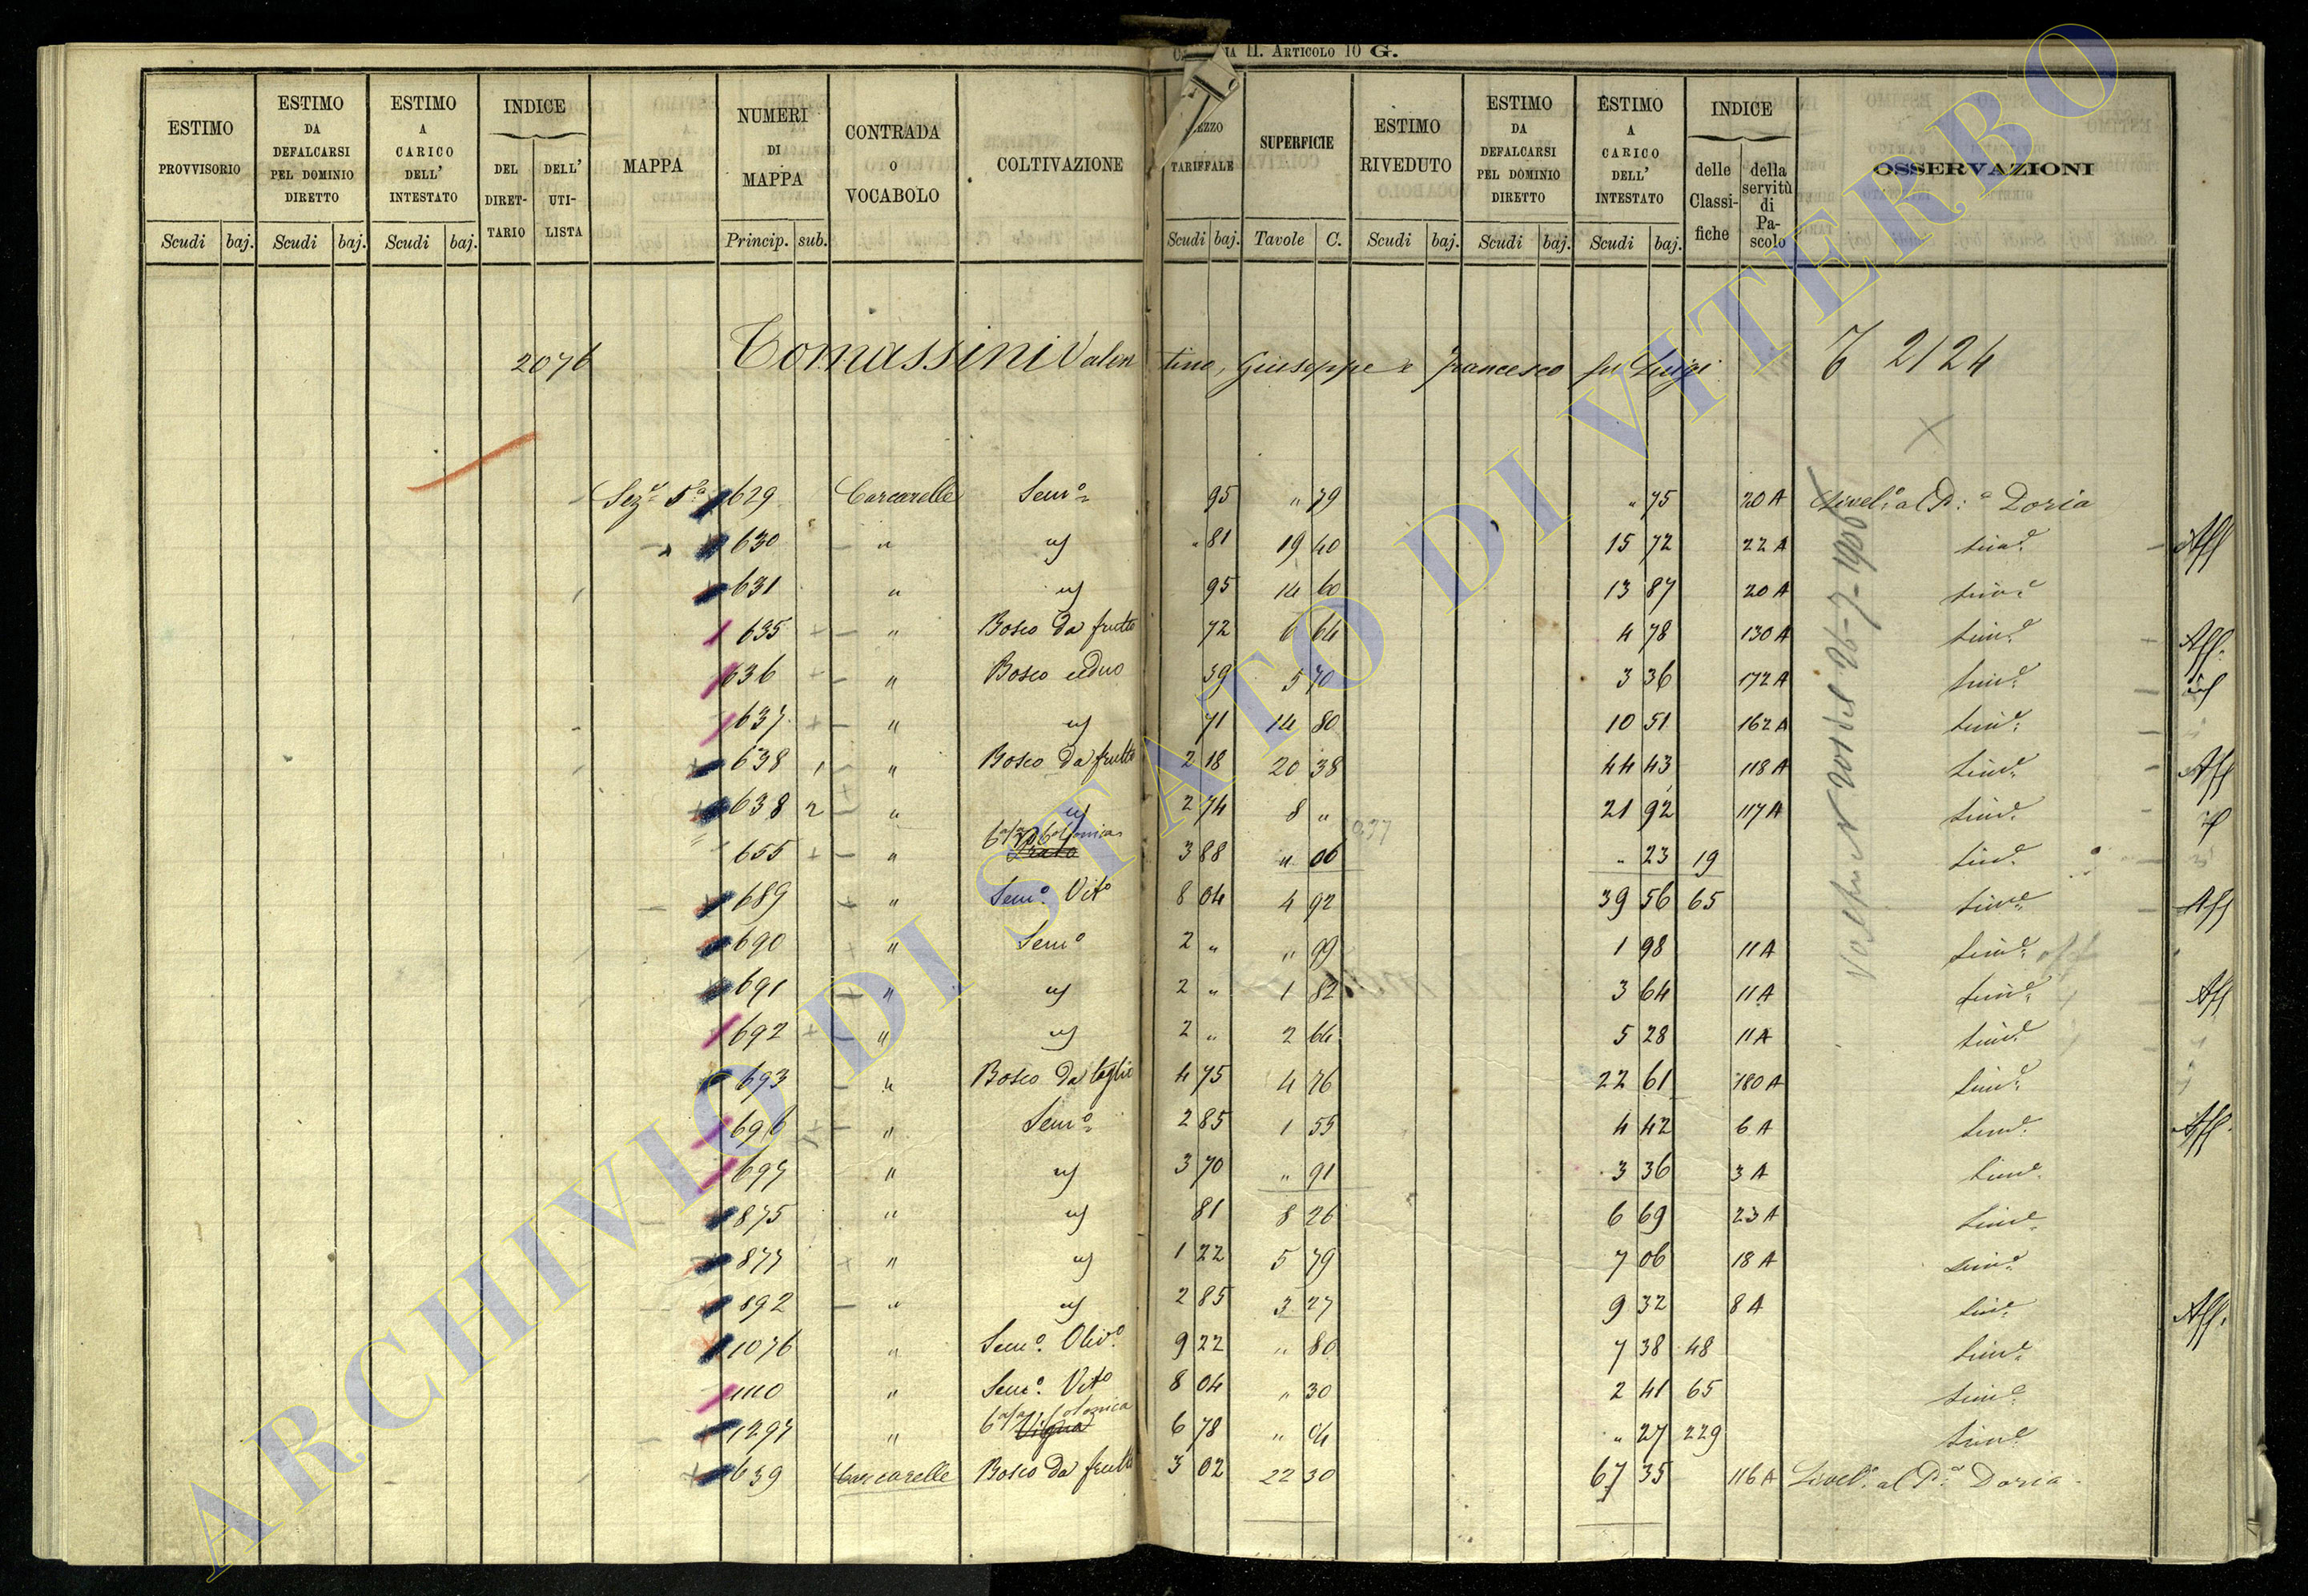 CATEGORIA II. ARTICOLO 10 G.
ESTIMO PROVVISORIO Scudi baj.
ESTIMO DA DEFALCARSI PEL DOMINIO DIRETTO Scudi baj.
ESTIMO A CARICO DELL' INTESTATO Scudi baj.
INDICE DEL DIRETTARIO DELL' UTILISTA
MAPPA
NUMERI DI MAPPA Princip. sub.
CONTRADA O VOCABOLO
COLTIVAZIONE
TARIFFALE Scudi baj.
SUPERFICIE Tavole C.
ESTIMO RIVEDUTO Scudi baj.
ESTIMO DA DEFALCARSI PEL DOMINIO DIRETTO Scudi baj.
ESTIMO A CARICO DELL' INTESTATO Scudi baj.
INDICE delle Classifiche della servitù di Pascolo
OSSERVAZIONI
2076 Tomassini Valentino, Giuseppe e Francesco fu Luigi 2124
Sezᵉ 5ᵃ 629 Carcarelle Semᵒ 95 " 79 " 75 20 A Livelᵒ al P. Doria
630 " 81 19 40 15 72 22 A Aff
631 " 95 14 60 13 87 20 A
635 " Bosco da frutto 72 6 64 4 78 130 A Aff.
636 " Bosco ceduo 59 5 70 3 36 172 A
637 " 71 14 80 10 51 162 A
638 1 " Bosco da frutto 2 18 20 38 44 43 118 A Aff
638 2 " 2 74 8 " 21 92 117 A
655 " Prato 3 88 " 06 " 23 19
689 " Semᵒ Vitᵒ 8 04 4 92 39 56 65 Aff
690 " Semᵒ 2 " " 99 1 98 11 A
691 " 2 " 1 82 3 64 11 A Aff
692 " 2 " 2 64 5 28 11 A
693 " Bosco da taglio 4 75 4 76 22 61 180 A
696 " Semᵒ 2 85 1 55 4 42 6 A Aff.
697 " 3 70 " 91 3 36 3 A
875 " 81 8 26 6 69 23 A
877 " 1 22 5 79 7 06 18 A
892 " 2 85 3 27 9 32 8 A Aff.
1076 " Semᵒ Olivᵒ 9 22 " 80 7 38 48
1110 " Semᵒ Vitᵒ 8 04 " 30 2 41 65
1297 " Vigna 6 78 " 04 " 27 229
639 Carcarelle Bosco da frutto 3 02 22 30 67 35 116 A Livelᵒ al P. Doria
26-7-1906
ARCHIVIO DI STATO DI VITERBO